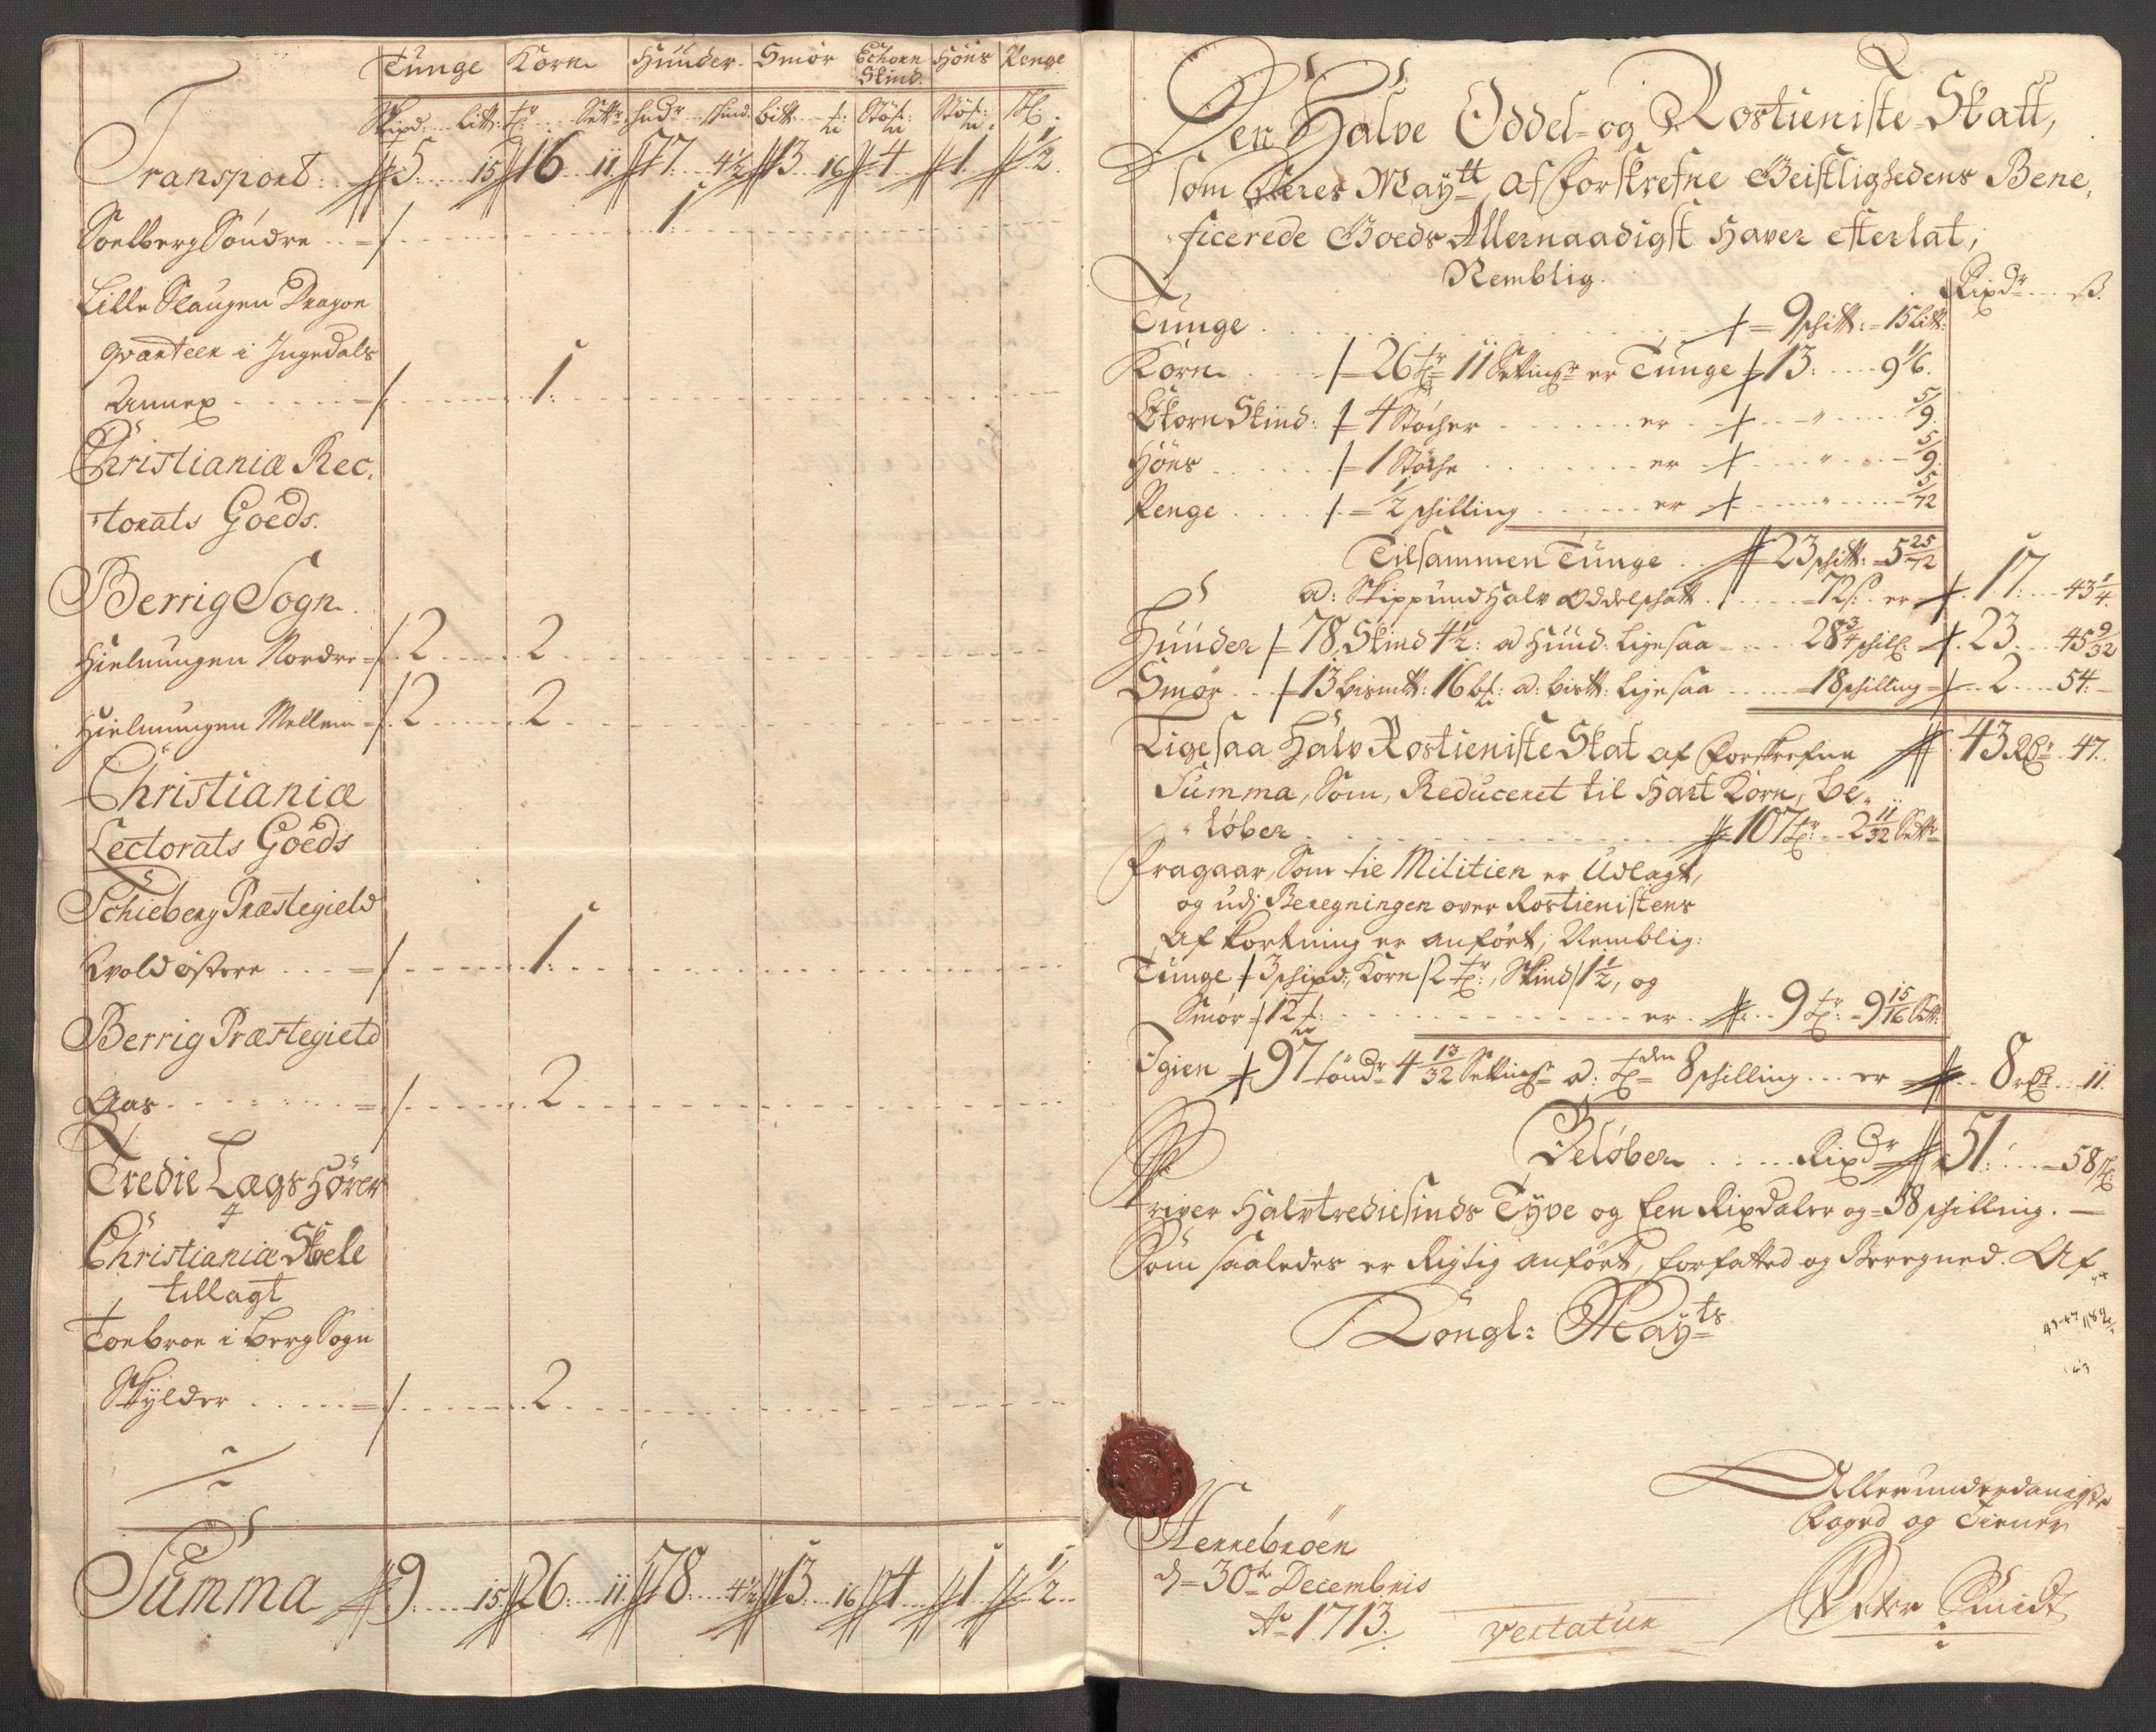 Tunge Korn Hüüder Smör Echorn Skind Höns Penge
Skipd: Litt: tr Settr hudr skind bitt: Støk: Støk: ß
Transport 5 15 16 11 77 4½ 13 16 4 1 ½
Soelberg Söndre 1
Lille Slaugen Dragon
qvarteer i Ingedals
Annex 1
Christianiæ Rec,
torats Goeds.
Berrig Sogn
Hielmungen Nordre 2 2
Hielmungen Mellem 2 2
Christianiæ
Lectorats Goeds
Schieberg Præstegield
Qvold østere 1
Berrig Præstegield
Aas 2
Tredie Lægs Hörer
Christianiæ Skoele
tillagt
Torbroe i Berg Sogn
Skylder 2
Summa 9 15 26 11 78 4½ 13 16 4 1 ½
Den Halve Oddel- og Rostieniste-Skatt,
som Deres Maytt af forskrefne Geistlighedens Bene,
ficerede Goeds Allernaadigst haver efterlat,
Nemblig. Rixdr ß.
Tunge 9 skitt: 15 Litt:
Korn 26 tr 11 Settingr er Tunge 13 9 1/6
Ekorn Skind: 4 Støcher er " 5/9
Höns 1 Støche er " 5/9
Penge ½ skilling er " 5/72
Tilsammen Tunge 23 skitt: 5 25/72
a: Skippund halv Oddelskatt 72 ß er 17 43¼
Hüüder 78, Skind 4½: a Hüud: ligesaa 28¾ skill: 23 45 9/32
Smör 13 bismtt: 16 b: a: bistt: ligesaa 18 skilling 2 54
Ligesaa Halv Rostieniste Skat af forskrefne 43 Rdr 47
Summa, Som, Reduceret til Hart Korn, be„
„løber 107 tr 2 11/32 Settr
Fragaar, Som til Militien er Udlagt,
og udj Beregningen over Rostienistens
afkortning er anført, Nemblig:
Tunge 3 skipd:, Korn 2 tr:, Skind 1½, og
Smör 12 er 9 tr: 9 15/16 Sett:
Igien 97 tøndr 4 13/32 Settingr a: tden 8 skilling er 8 rdr 11
Beløber Rixdr 51 58 ß
Skriver Halvtrediesinds Tyve og Een Rixdaler og 58 skilling.
Som saaledes er Rigtig anført, forfatted og Beregned. Af
Kongl: Mayts
Allerunderdanigste
Foged og Tiener
Peter Smidt
Hennebröen
d 30te Decembris
Ao 1713.
vertatur